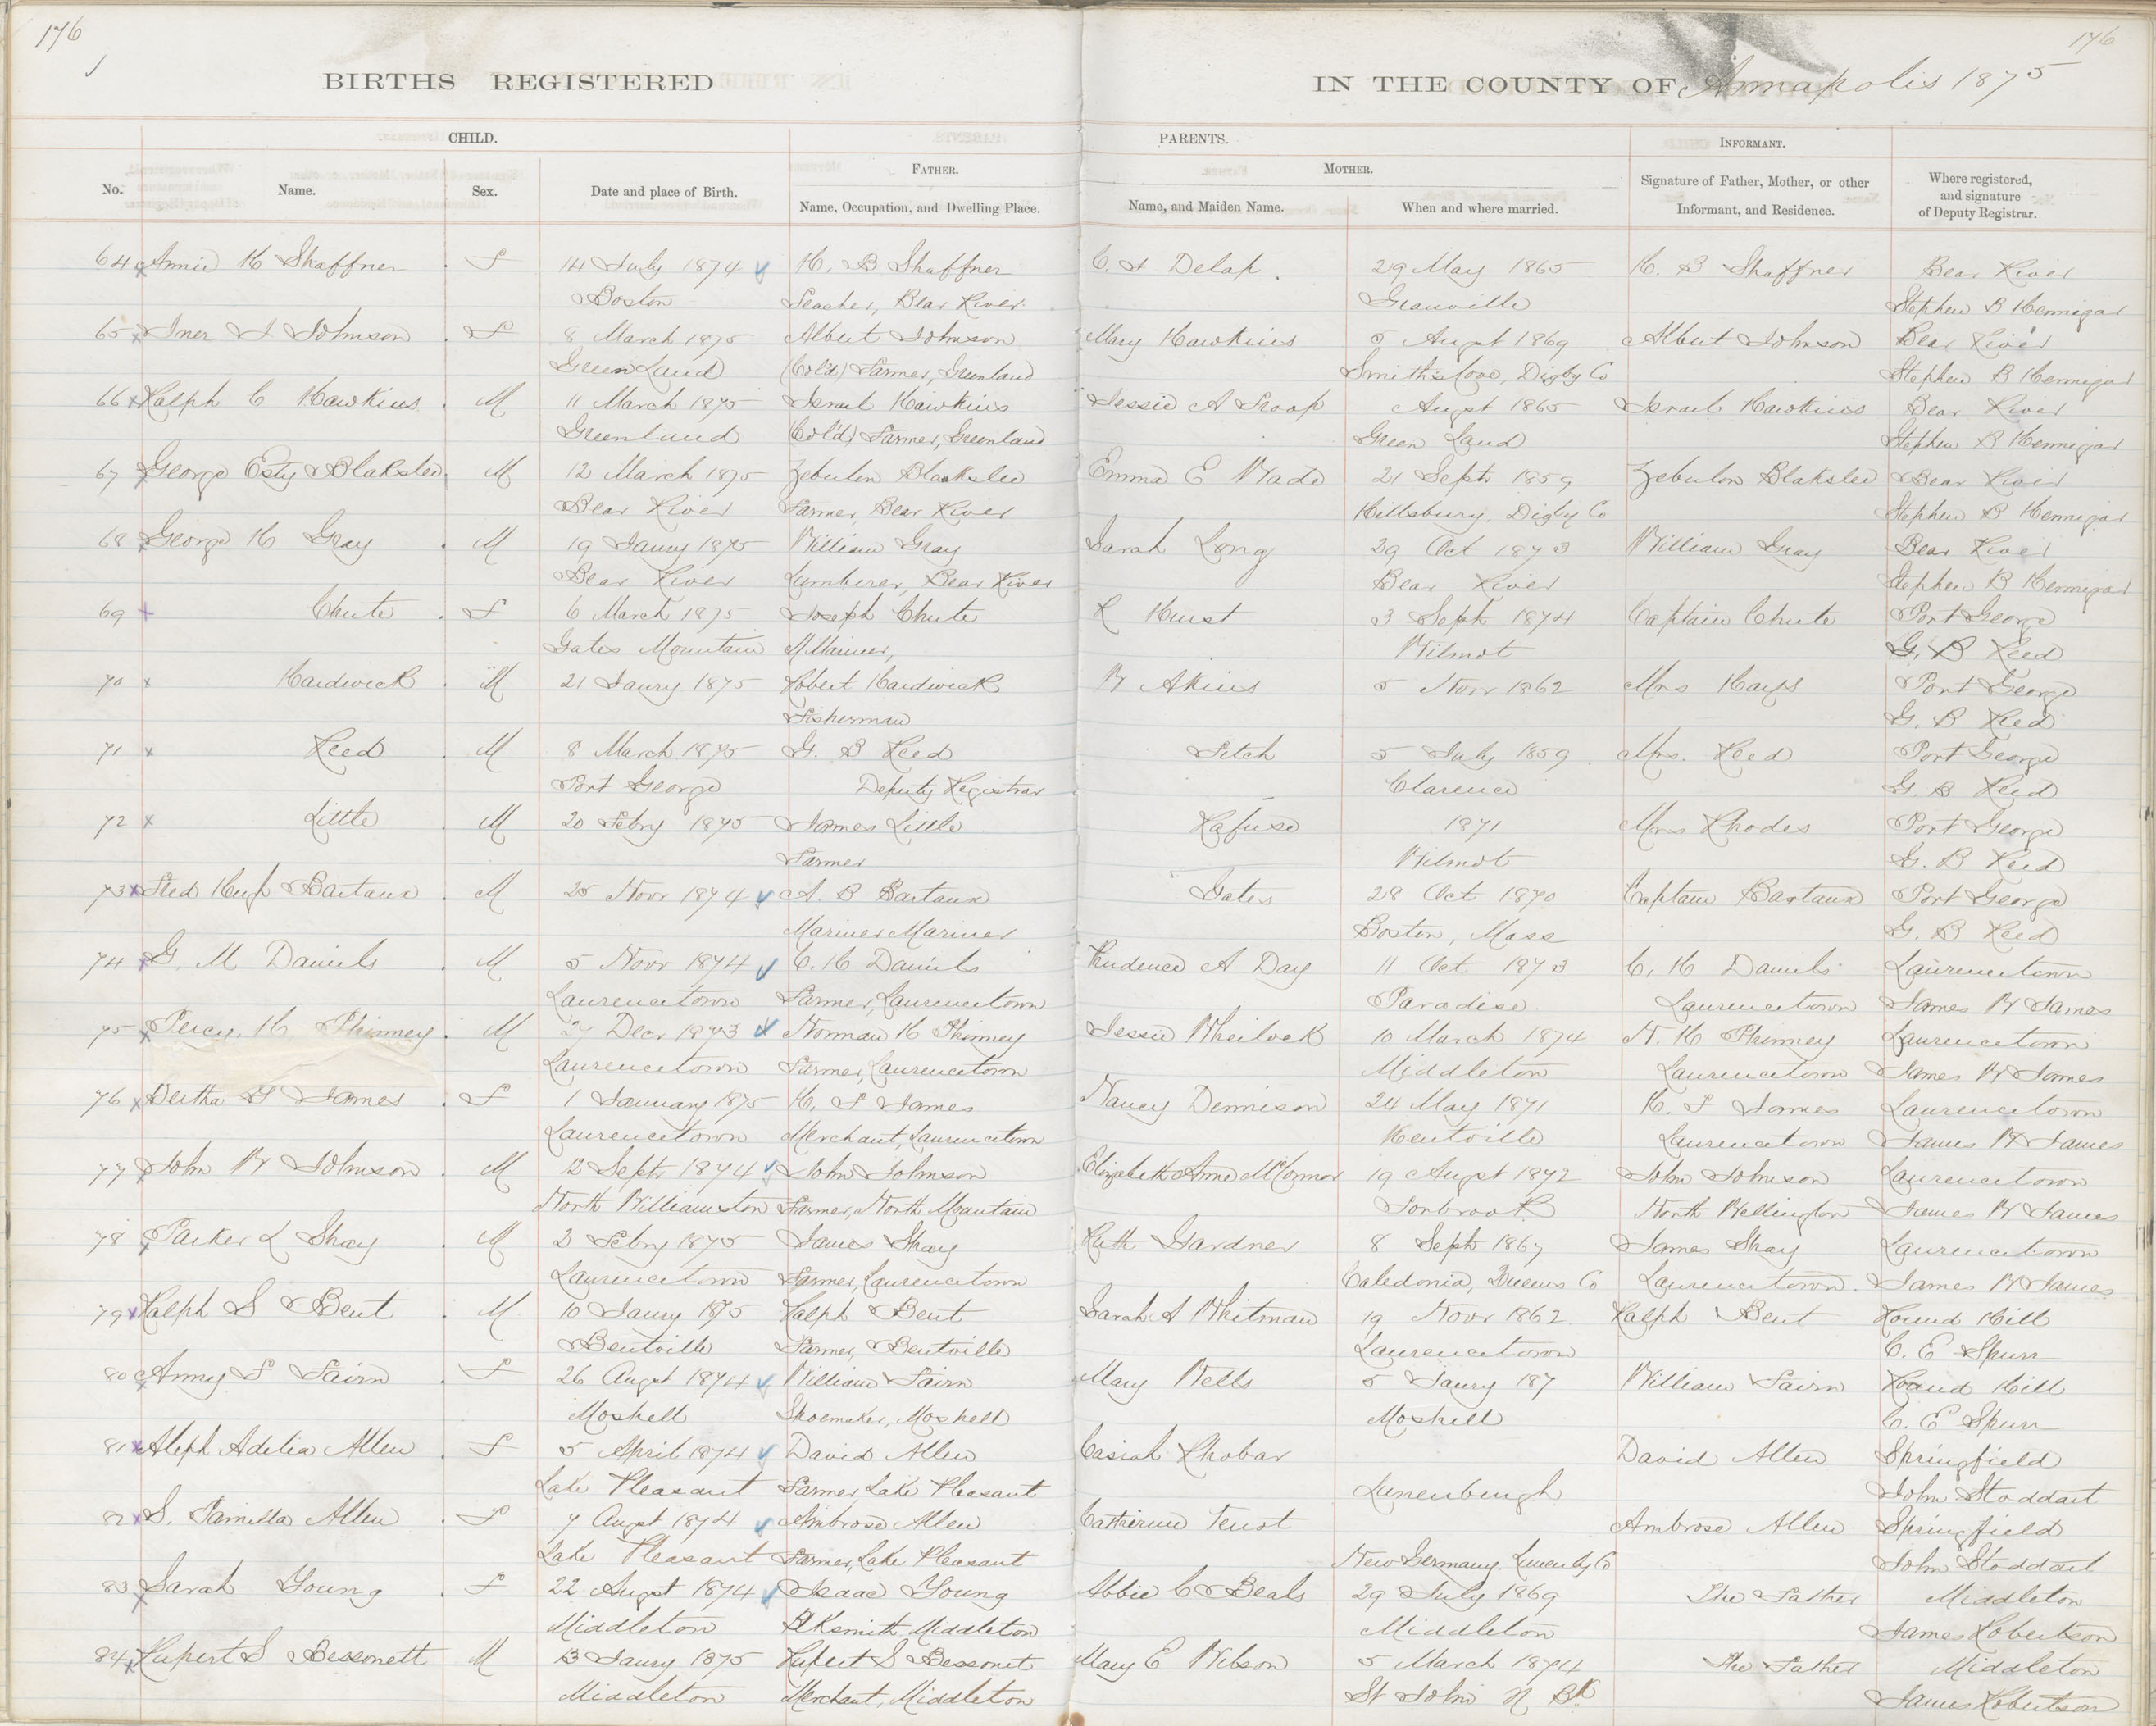 176
176
BIRTHS REGISTERED IN THE COUNTY OF Annapolis 1875
CHILD. PARENTS. INFORMANT.
FATHER. MOTHER.
No. Name. Sex. Date and place of Birth. Name, Occupation, and Dwelling Place. Name, and Maiden Name. When and where married. Signature of Father, Mother, or other Informant, and Residence. Where registered, and signature of Deputy Registrar.
64 Annie H Shaffner F 14 July 1874 H. B Shaffner C. I Delap. 29 May 1865 H. B Shaffner Bear River
Boston Teacher, Bear River. Granville Stephen B Hennigar
65 Iner I Johnson F 8 March 1875 Albert Johnson Mary Hawkins 5 Augst 1869 Albert Johnson Bear River
Green Land (Col'd) Farmer, Greenland Smith's Cove, Digby Co Stephen B Hennigar
66 Ralph C Hawkins M 11 March 1875 Israel Hawkins Jessie A Troop Augst 1865 Israel Hawkins Bear River
Greenland (Col'd) Farmer, Greenland Green Land Stephen B Hennigar
67 George Esty Blakslee M 12 March 1875 Zebulon Blakslee Emma E Wade 21 Septr 1859 Zebulon Blakslee Bear River
Bear River Farmer, Bear River Hillsbury, Digby Co Stephen B Hennigar
68 George H Gray M 19 Jany 1875 William Gray Sarah Long 29 Oct 1873 William Gray Bear River
Bear River Lumberer, Bear River Bear River Stephen B Hennigar
69 Chute F 6 March 1875 Joseph Chute R Hurst 3 Septr 1874 Captain Chute Port George
Gates Mountain M Mariner, Wilmot G. B Reed
70 Hardwick M 21 Janry 1875 Robert Hardwick W Akins 5 Novr 1862 Mrs Hays Port George
Fisherman G. B Reed
71 Reed M 8 March 1875 G. B Reed Fitch 5 July 1859 Mrs. Reed Port George
Port George Deputy Registrar Clarence G. B Reed
72 Little M 20 Febry 1875 James Little Rafuse 1871 Mrs Rhodes Port George
Farmer Wilmot G. B Reed
73 Fred Hugh Bartaux M 25 Novr 1874 A. B Bartaux Gates 28 Oct 1870 Captain Bartaux Port George
Mariner Mariner Boston, Mass G. B Reed
74 G. M Daniels M 5 Novr 1874 C. H Daniels Prudence A Day 11 Oct 1873 C. H Daniels Laurencetown
Laurencetown Farmer, Laurencetown Paradise Laurencetown James W James
75 Percy. H Phinney M 27 Decr 1873 Norman H Phinney Jessie Wheilock 10 March 1874 N. H Phinney Laurencetown
Laurencetown Farmer, Laurencetown Middleton Laurencetown James W James
76 Bertha F James F 1 January 1875 H. F James Nancy Dennison 24 May 1871 H. F James Laurencetown
Laurencetown Merchant, Laurencetown Kentville Laurencetown James W James
77 John W Johnson M 12 Septr 1874 John Johnson Elizabeth Anne McConnor 19 Augst 1872 John Johnson Laurencetown
North Williamston Farmer, North Mountain Torbrook North Wellington James W James
78 Parker L Shay M 2 Febry 1875 James Shay Ruth Gardner 8 Septr 1867 James Shay Laurencetown
Laurencetown Farmer, Laurencetown Caledonia, Queens Co Laurencetown. James W James
79 Ralph S Bent M 10 Janry 1875 Ralph Bent Sarah A Whitman 19 Novr 1862. Ralph Bent Round Hill
Bentville Farmer, Bentville Laurencetown C. E Spurr
80 Anny F Fairn F 26 Augst 1874 William Fairn Mary Wells 5 Janry 187 William Fairn Round Hill
Moshell Shoemaker, Moshell Moshell C. E Spurr
81 Aleph Adelia Allen F 5 April 1874 David Allen Casiah Chobar David Allen Springfield
Lake Pleasant Farmer, Lake Pleasant Lunenburgh John Stoddart
82 S. Pamilla Allen F 7 Augst 1874 Ambrose Allen Catherine Veinot Ambrose Allen Springfield
Lake Pleasant Farmer, Lake Pleasant New Germany, Lunenbg Co John Stoddart
83 Sarah Young F 22 Augst 1874 Isaac Young Abbie C Beals 29 July 1869 The Father Middleton
Middleton Blksmith Middleton Middleton James Robertson
84 Rupert S Bessonett M 13 Janry 1875 Rupert S Bessonet Mary E Wilson 5 March 1874 The Father Middleton
Middleton Merchant, Middleton St John N Bk James Robertson